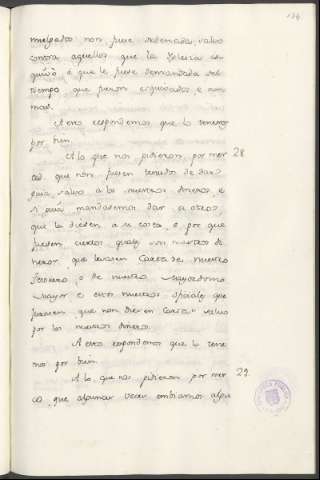 134
mulgados non fuese redemada, salvo
contra aquellos que la Iglesia se
guió, é que le fuese demandada del
tiempo que fueron escusados é non
mas.
A esto respondemos que lo tenemos
por bien.
A lo que nos pidieron por mer 28
ced que non fuesen tenudos de dar
guia, salvo a los nuestros dineros, e
si guia mandasemos dar a otros
que la diesen a su costa, e por que
fuesen ciertos quales son nuestros di
neros, que levasen Carta de nuestro
Tesorero, o de nuestro Mayordomo
Mayor e otros nuestros oficiales que
fuesen, que non diesen Carta salvo
por los nuestros dineros.
A esto respondemos que lo tene
mos por bien.
A lo que nos pidieron por mer 29
ced, que algunas veces embiamos algu